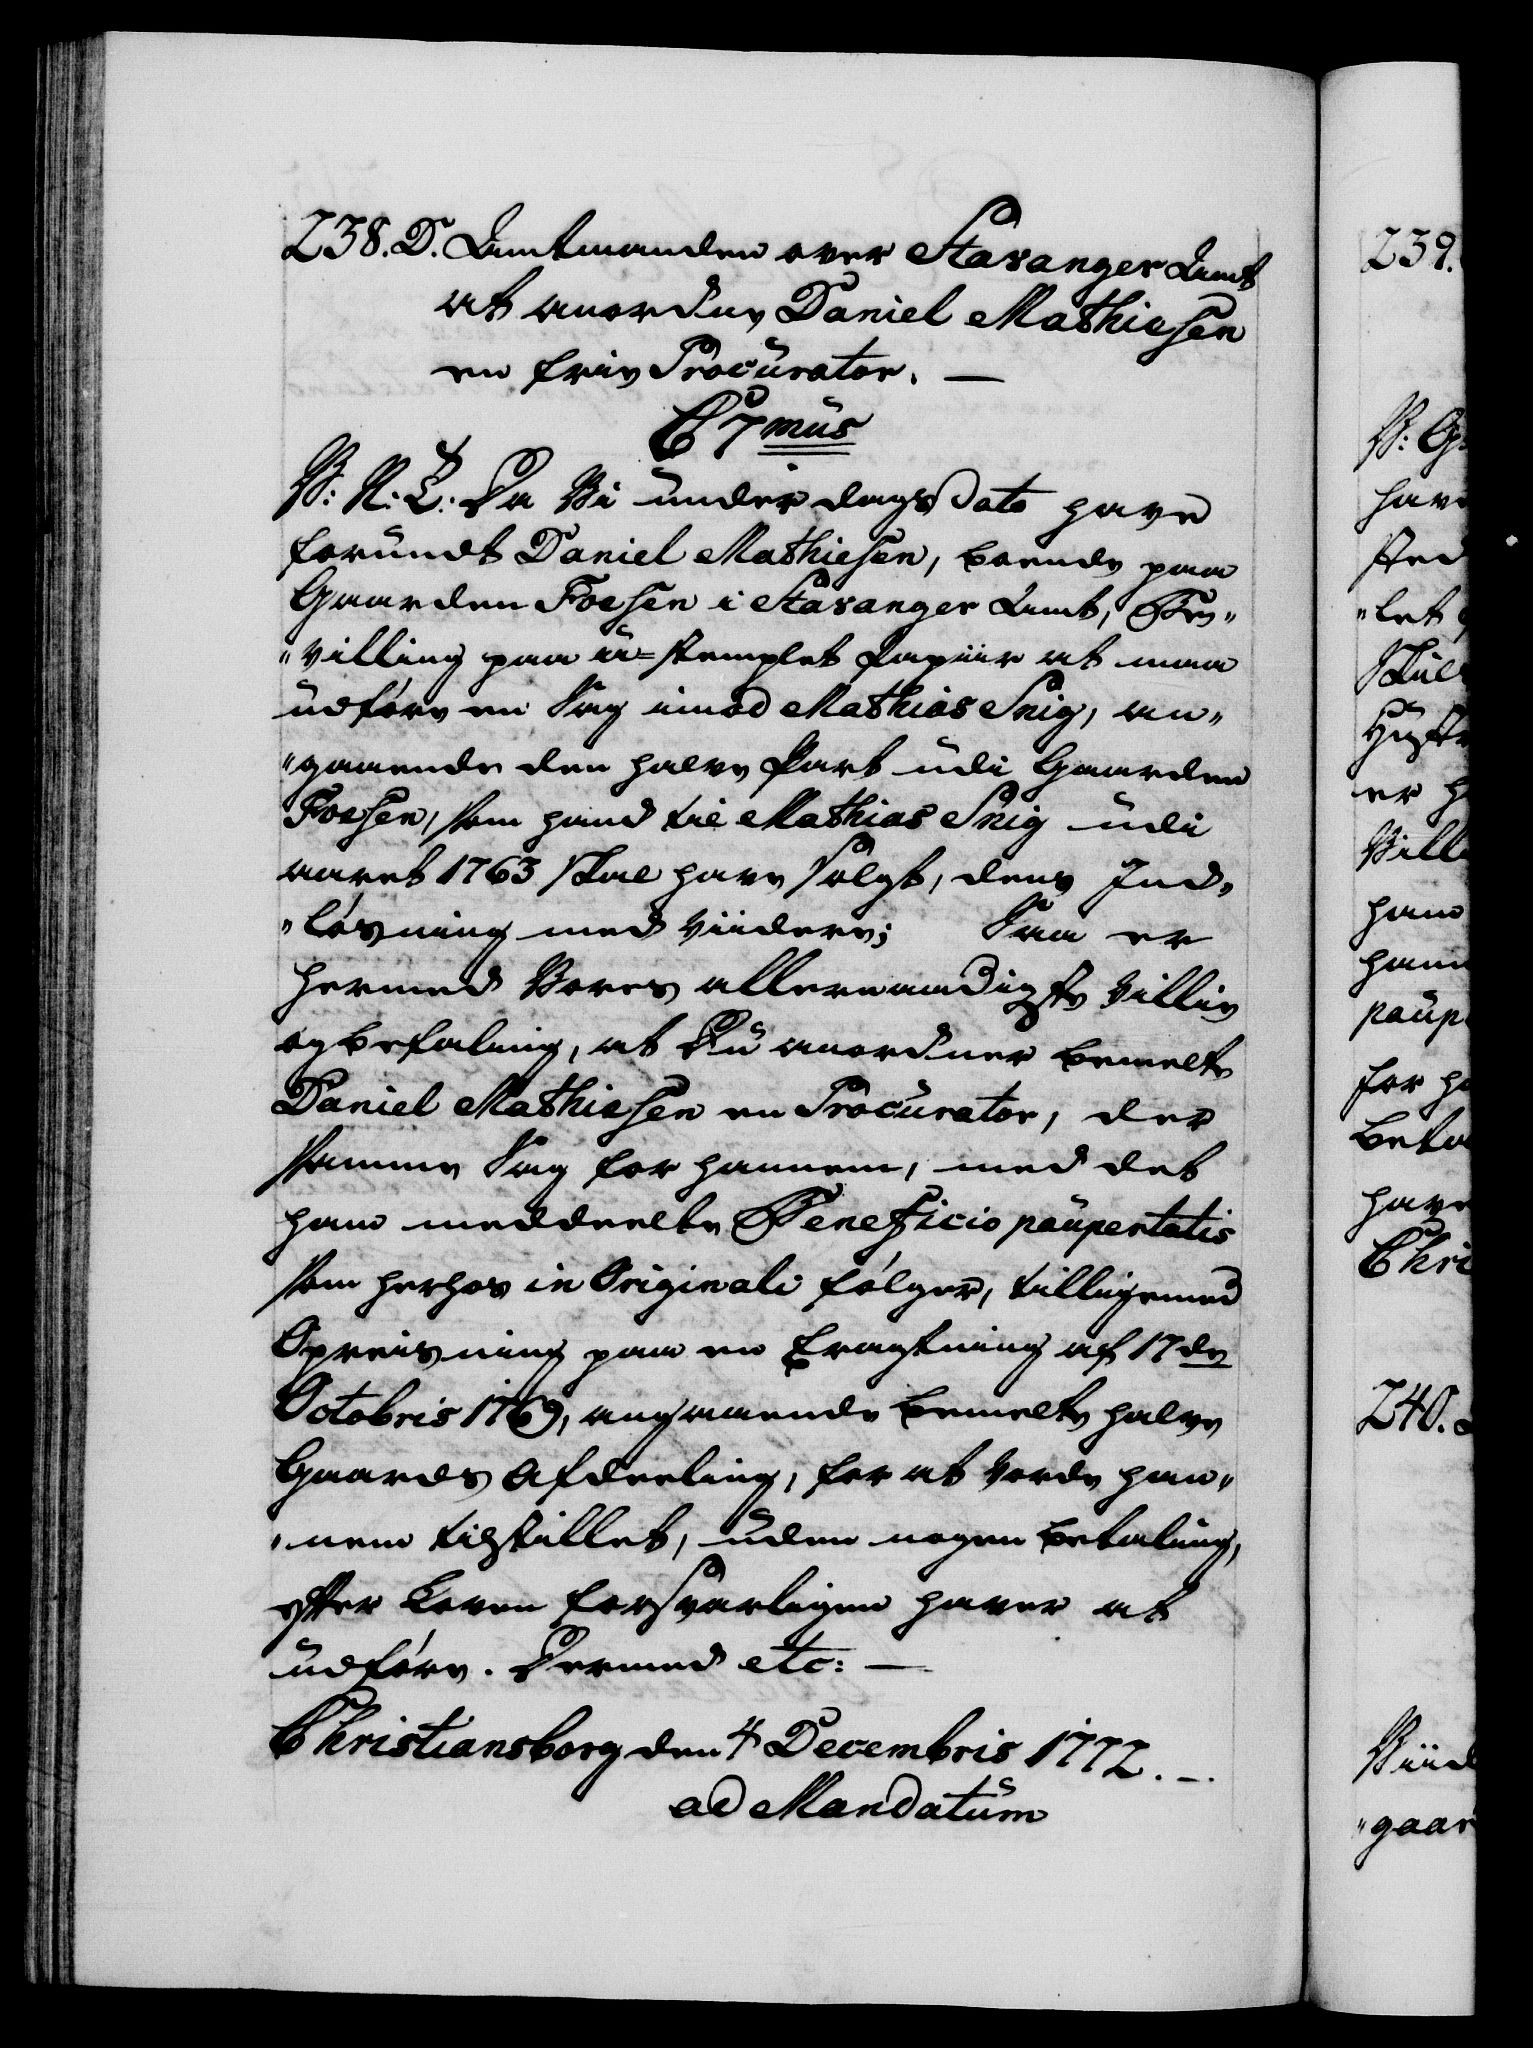 238. D. Amtmanden over Stavanger Amt
at anordne Daniel Mathiesen
en frie Procurator. —
C 7mus
V: N: T: Da Vi under dags Dato have
forundt Daniel Mathiesen, boende paa
Gaarden Foesen i Stavanger Amt, Be„
„villing paa u=stemplet Papiir at maa
udføre en Sag imod Mathias Snig, an„
„gaaende den halve Part udi Gaarden
Foesen, som hand til Mathias Snig udi
aaret 1763 skal have solgt, dens Ind„
„løsning med viidere; Saa er
hermed Vores allernaadigste Villie
og befaling, at Du anordner bemelte
Daniel Mathiesen en Procurator, der
samme Sag for hannem, med det
ham meddeelte Beneficio paupertatis
som herhos in Originali følger, tilligemed
Opreisning paa en Eragtning af 17de
Octobris 1769, angaaende bemelte halve
Gaards Afdeeling, for at vorde han„
„nem tilstillet, uden nogen betaling,
efter Loven forsvarligen haver at
udføre. Dermed etc: —
Christiansborg den 4 Decembris 1772. —
ad Mandatum
239.
V: G:
have
sted
„let
Skul
er
Ville
ham
ham
paup
for
beta
have
Chri
240.
Viid
„gaar